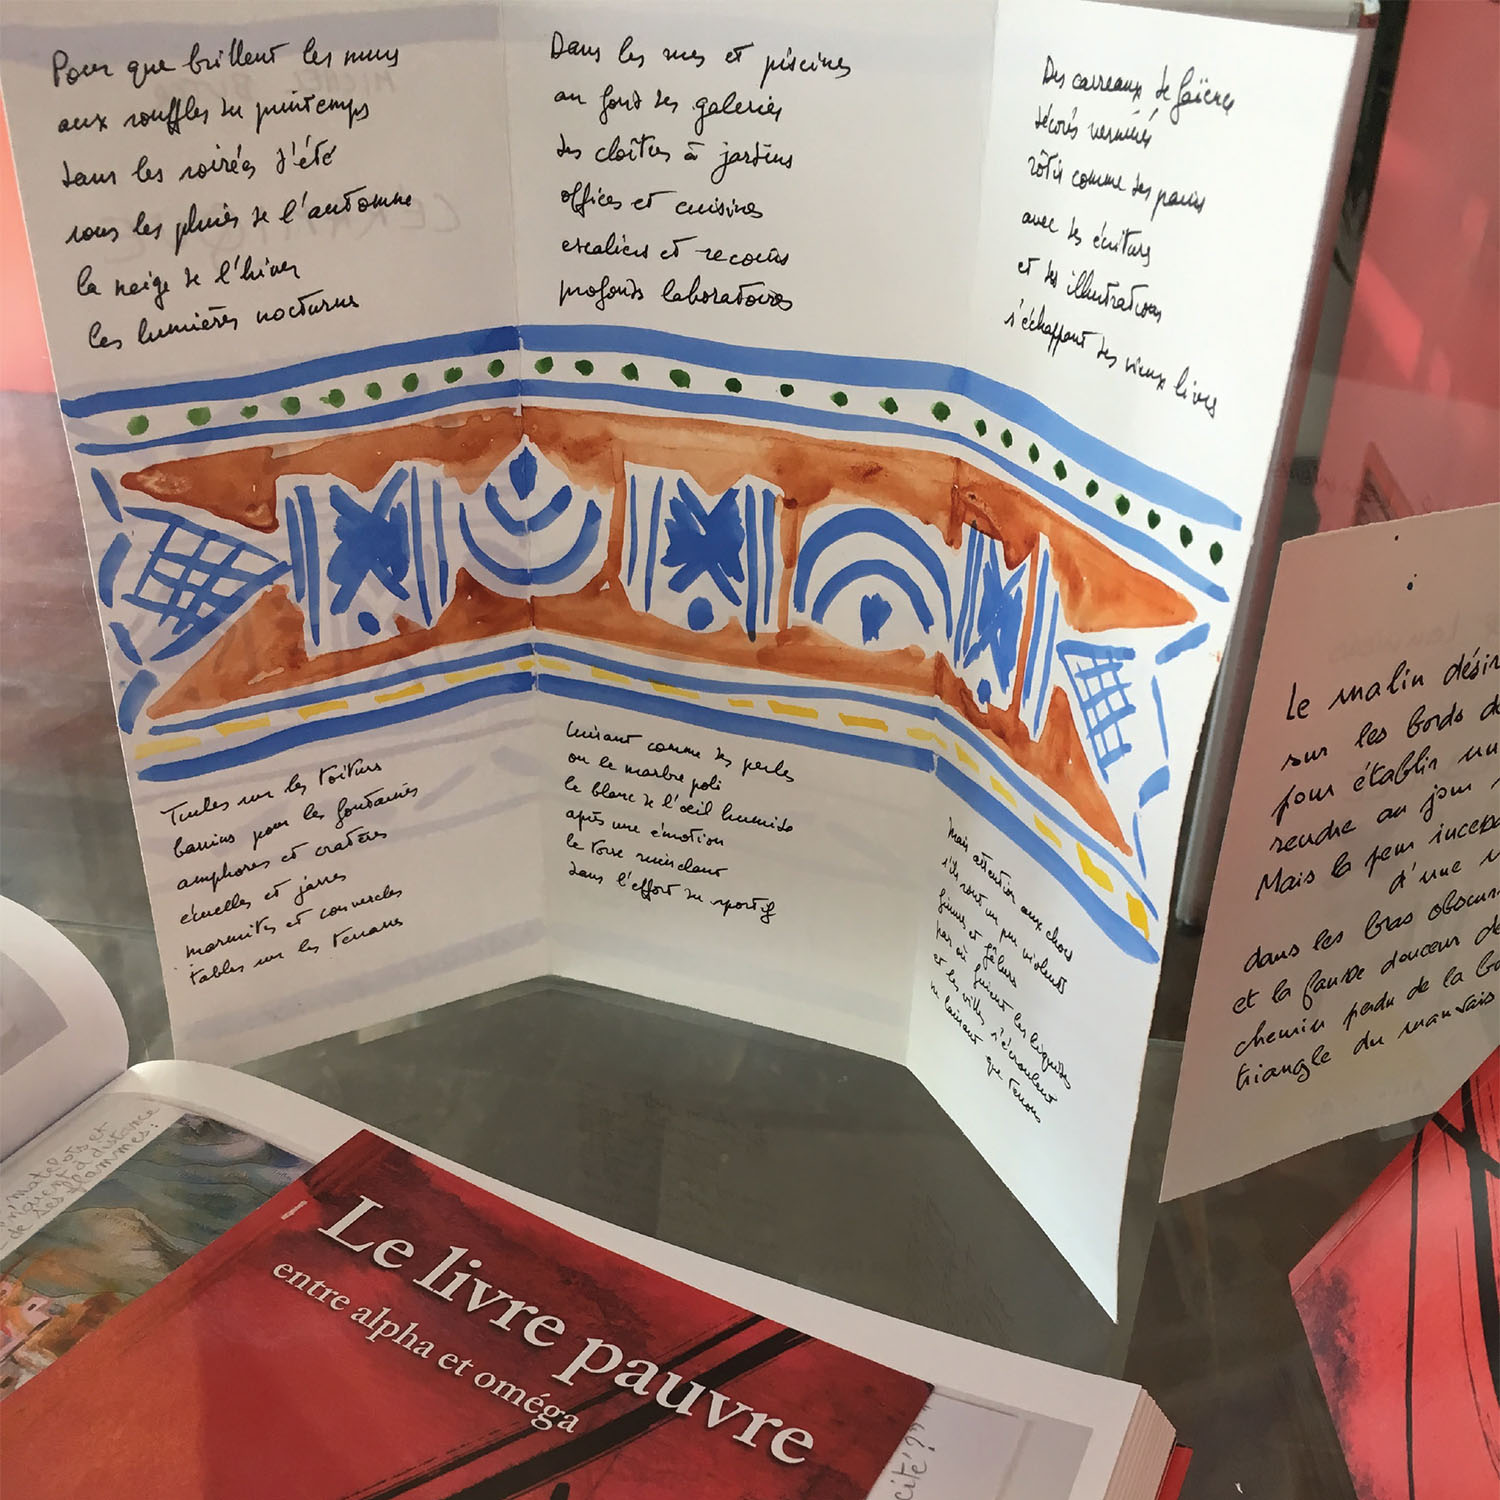 Pour que brillent les murs
aux souffles du printemps
dans les soirées d'été
sous les pluies de l'automne
la neige de l'hiver
les lumières nocturnes
Dans les rues et piscines
au fond des galeries
des cloîtres à jardins
offices et cuisines
escaliers et recoins
profonds laboratoires
Des carreaux de faïence
décorés vernissés
rôtis comme des pains
avec des écritures
et des illustrations
s'échappant des vieux livres
Tuiles sur les toitures
bassins pour les fontaines
amphores et cratères
écuelles et jarres
marmites et couvercles
tables sur les terrasses
Luisant comme des perles
ou le marbre poli
le blanc de l'œil humide
après une émotion
le torse ruisselant
dans l'effort du sportif
Mais attention aux chocs
s'ils sont un peu violents
fissures et fêlures
par où fuient les liquides
et les villes s'écroulent
ne laissant que tessons
Le malin désir
sur les bords d
pour établir un
rendre au jour
Mais la peur
d'une
dans les bras obscur
et la fausse douceur de
chemin perdu de la
triangle du mauvais
matelots et
à distance
de ses flammes:
Le livre pauvre
entre alpha et oméga
cité?"